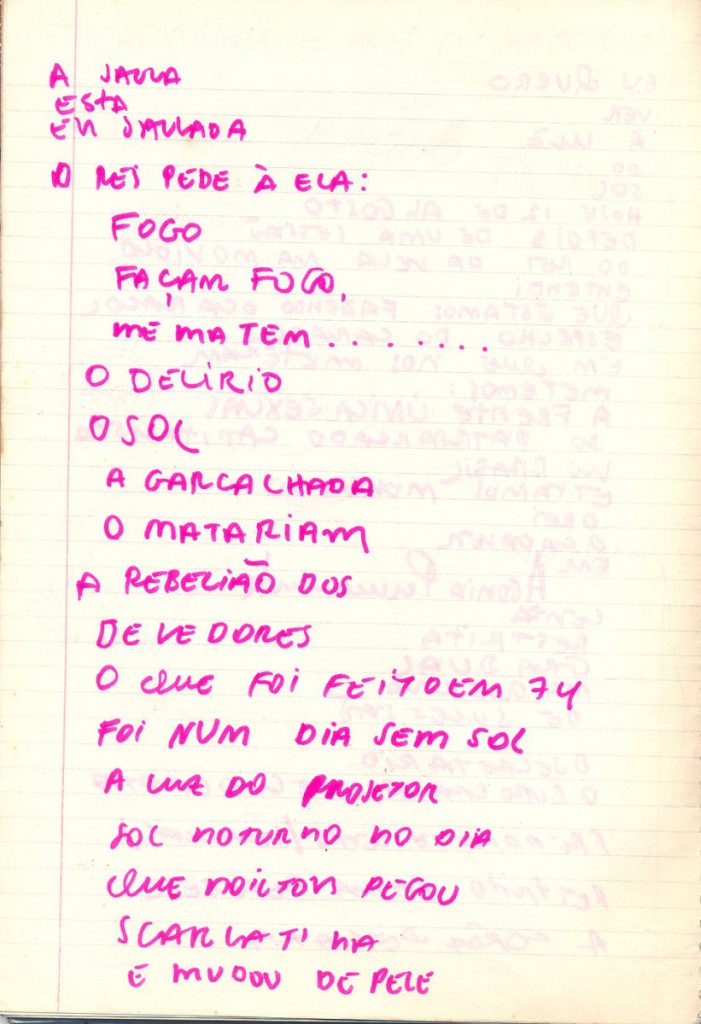 A JAULA
ESTA
EN JAULADA
O REI PEDE À ELA:
FOGO
FAÇAM FOGO,
ME MATEM . . . . . . . .
O DELÍRIO
O SOL
A GARGALHADA
O MATARIAM
A REBELIÃO DOS
DEVEDORES
O QUE FOI FEITO EM 74
FOI NUM DIA SEM SOL
A LUZ DO PROJETOR
SOL NOTURNO NO DIA
QUE NOILTON PEGOU
SCARLATINA
E MUDOU DE PELE